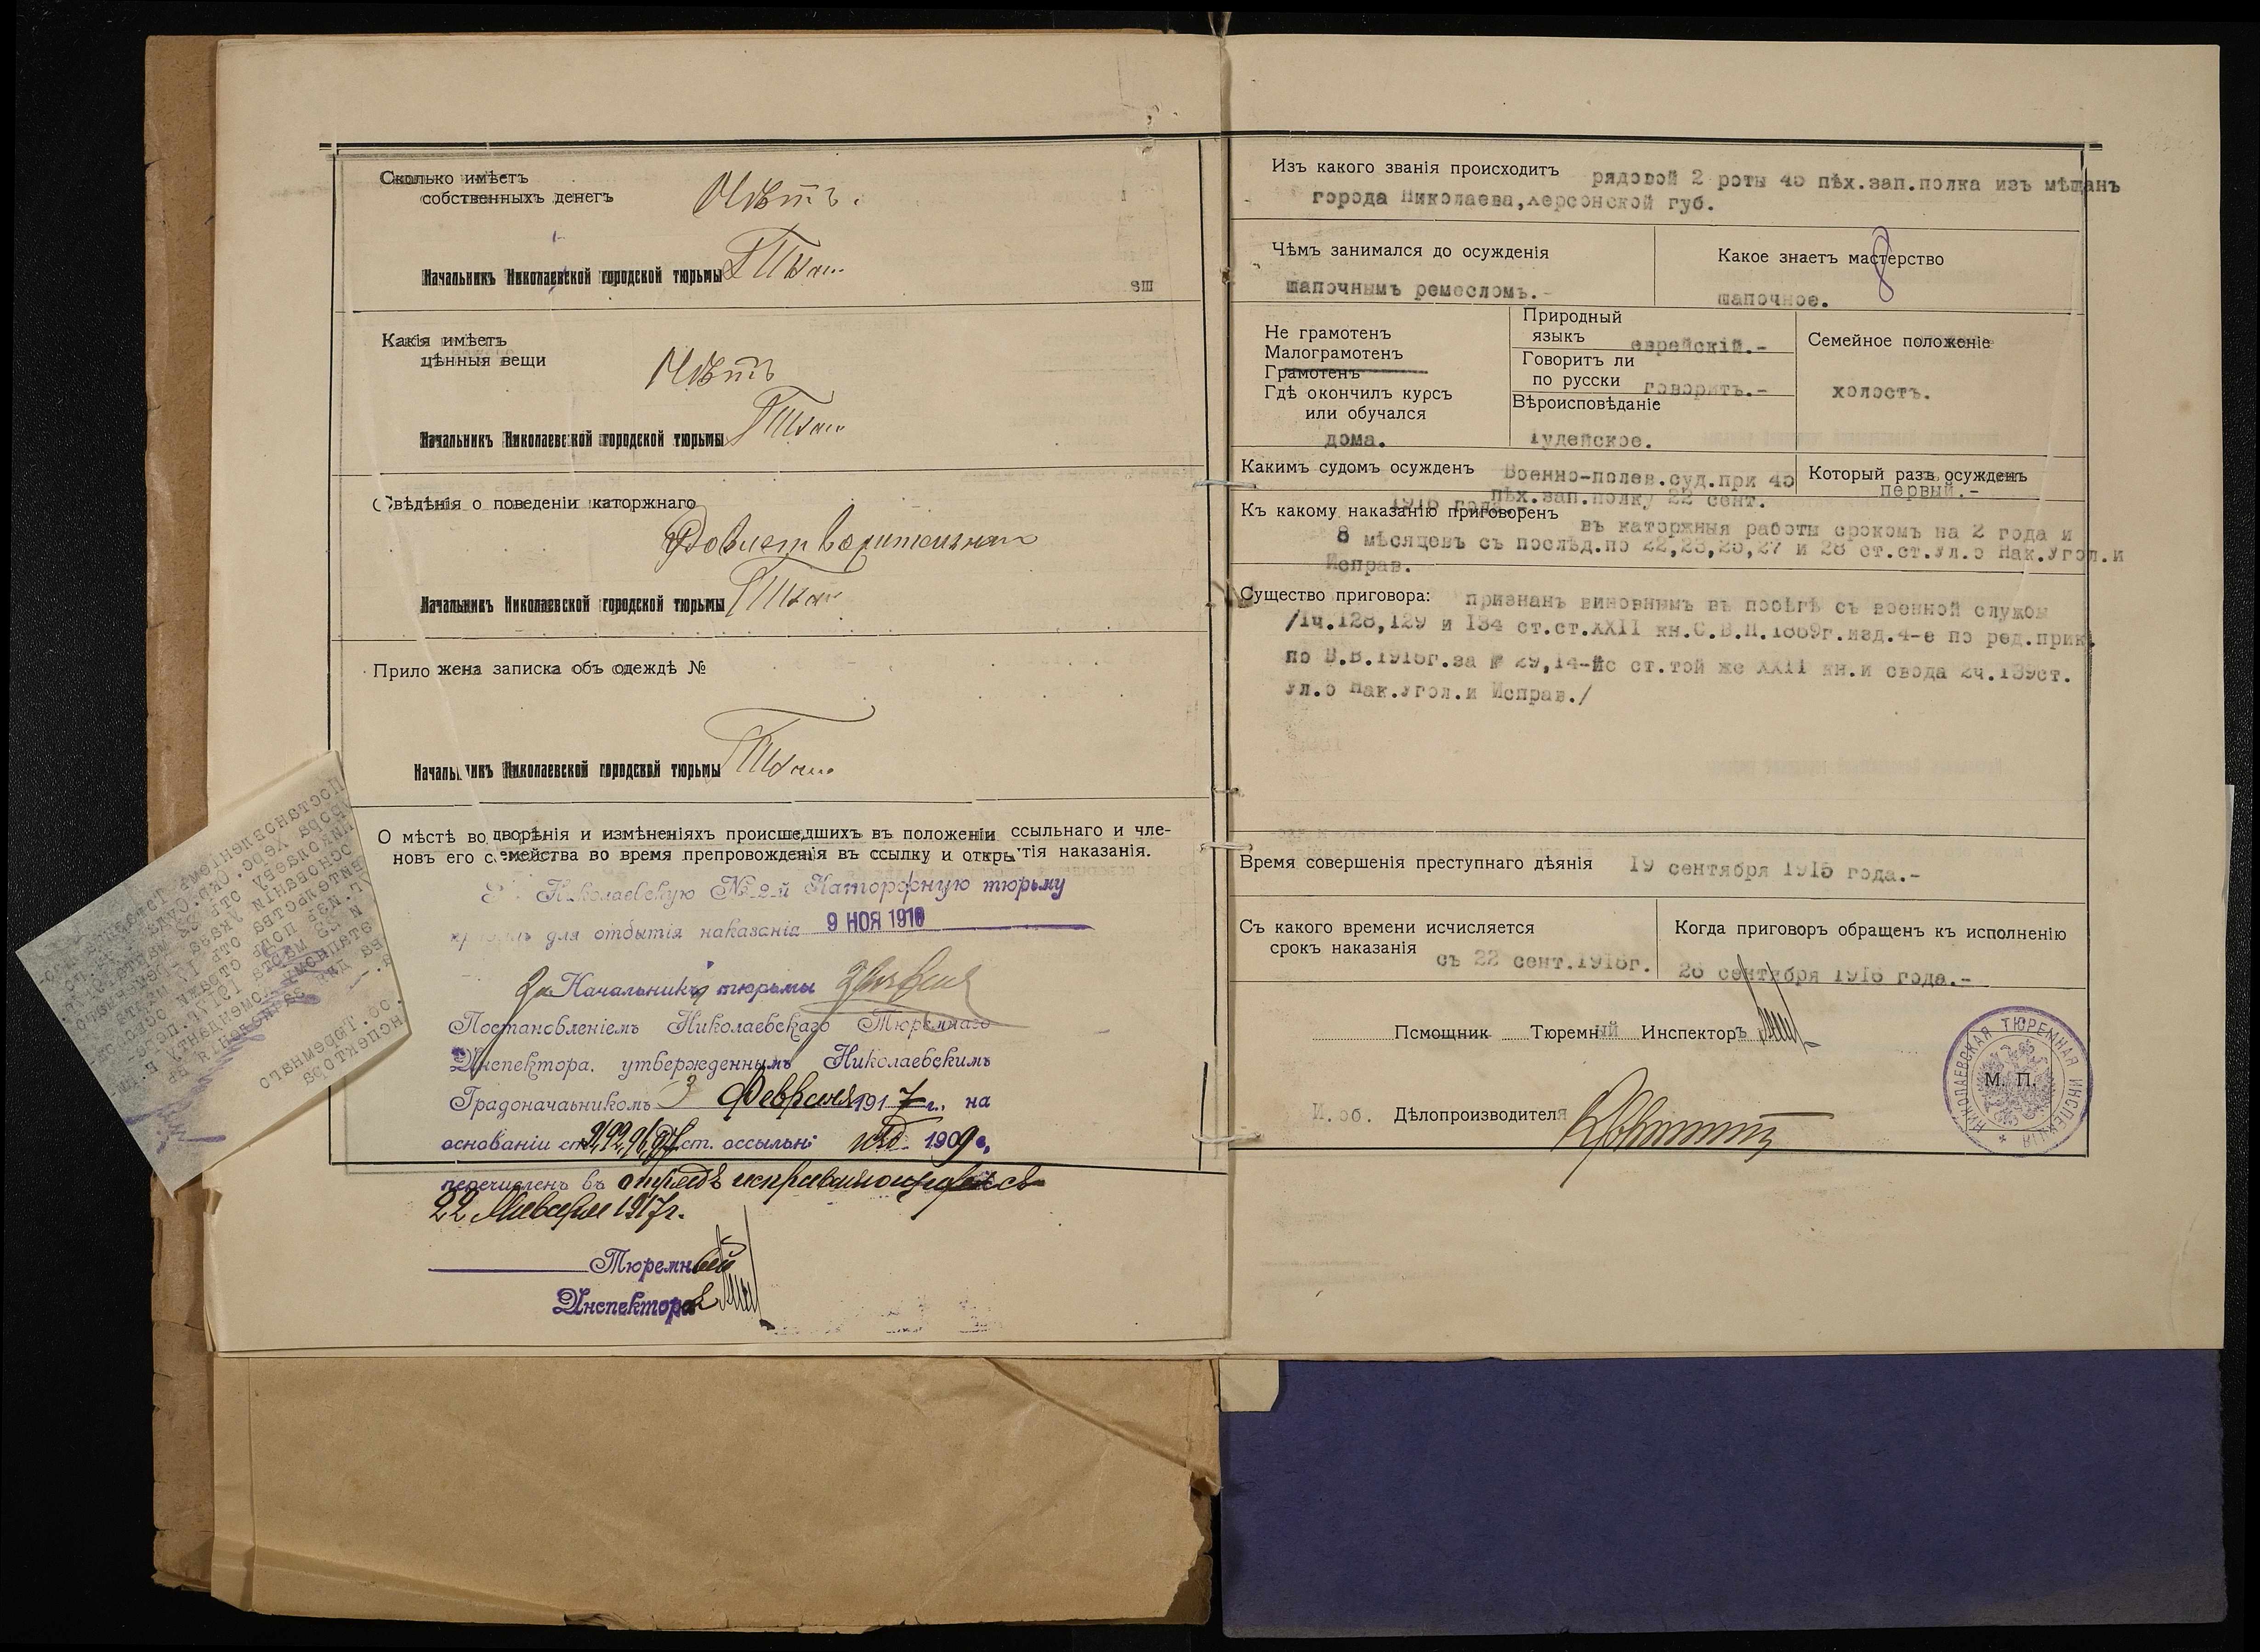 Сколько имѣетъ
собственныхъ денегъ
Нѣтъ.
Начальникъ Николаевской городской тюрьмы
Какія имѣетъ
цѣнныя вещи
Нѣтъ
Начальникъ Николаевской городской тюрьмы
Свѣдѣнія о поведеніи каторжнаго
Удовлетворительная
Начальникъ Николаевской городской тюрьмы
Приложена записка объ одеждѣ №
Начальникъ Николаевской городской тюрьмы
О мѣстѣ водворѣнія и измѣненіяхъ происшедшихъ въ положеніи ссыльнаго и чле-
новъ его семейства во время препровожденія въ ссылку и открытія наказанія.
Николаевскую № 2-й Каторжную тюрьму
для отбытія наказанія 9 НОЯ 1916
Начальникъ тюрьмы
Постановленіемъ Николаевскаго Тюремнаго
Инспектора, утвержденнымъ Николаевскимъ
Градоначаьникомъ 3 Февраля 1917 г., на
основаніи ст. уст. оссыльн: изд. 1909 г.
перечисленъ въ отрядъ исправляющихся съ
22 Января 1917 г.
Тюремный
Инспекторъ
Изъ какого званія происходитъ рядовой 2 роты 45 пѣх.зап.полка изъ мѣщанъ
города Николаева,Херсонской губ.
Чѣмъ занимался до осужденія
шапочнымъ ремесломъ.-
Какое знаетъ мастерство
шапочное.
Не грамотенъ
Малограмотенъ
Грамотенъ
Гдѣ окончилъ курсъ
или обучался
дома.
Природный
языкъ еврейскій.-
Говоритъ ли
по русски говоритъ.-
Вѣроисповѣданіе
Іудейское.
Семейное положеніе
холостъ.
Какимъ судомъ осужденъ Военно-полев.суд.при 45
пѣх.зап.полку 22 сент.
1916 года.-
Который разъ осужденъ
первый.-
Къ какому наказанію приговоренъ въ каторжныя работы срокомъ на 2 года и
8 мѣсяцевъ съ послѣд.по 22,23,25,27 и 28 ст.ст.Ул.о Нак.Угол.и
Исправ.
Существо приговора: признанъ виновнымъ въ побѣгѣ съ военной службы
/1ч.128,129 и 134 ст.ст.XXII кн.С.В.П.1869г.изд.4-е по ред.прик.
по В.В.1915г.за № 29,14-йс ст.той же XXII кн.и свода 2ч.139ст.
Ул.о Нак.Угол.и Исправ./
Время совершенія преступнаго дѣянія 19 сентября 1915 года.-
Съ какого времени исчисляется
срокъ наказанія съ 22 сент.1916г.
Когда приговоръ обращенъ къ исполненію
26 сентября 1916 года.-
Псмощник Тюремный Инспекторъ
И.об. Дѣлопроизводителя
М. П.
НИКОЛАЕВСКАЯ ТЮРЕМНАЯ ИНСПЕКЦІЯ